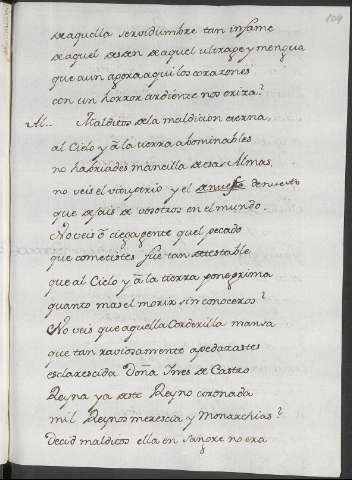 109
de aquella servidumbre tan infame
de aquel desden de aquel ultrage y mengua
que aun agora aqui los corazones
con un horror ardiente nos eriza?
Al.. Malditos de la maldicion eterna
al Cielo y â la tierra abominables
no habriades mancilla de esas Almas
no veis el vituperio y el denuesto
que dejais de vosotros en el mundo.
No veis ô ciega gente quel pecado
que cometistes fue tan detestable
que al Cielo y â la tierra pone grima
quanto mas el morir sin conoceros?
No veis que aquella Corderilla mansa
que tan raviosamente apedazastes
esclarescida Doña Ines de Castro
Reyna ya deste Reyno coronada
mil Reynos merescia y Monarchias?
Decid malditos ella en sangre no era